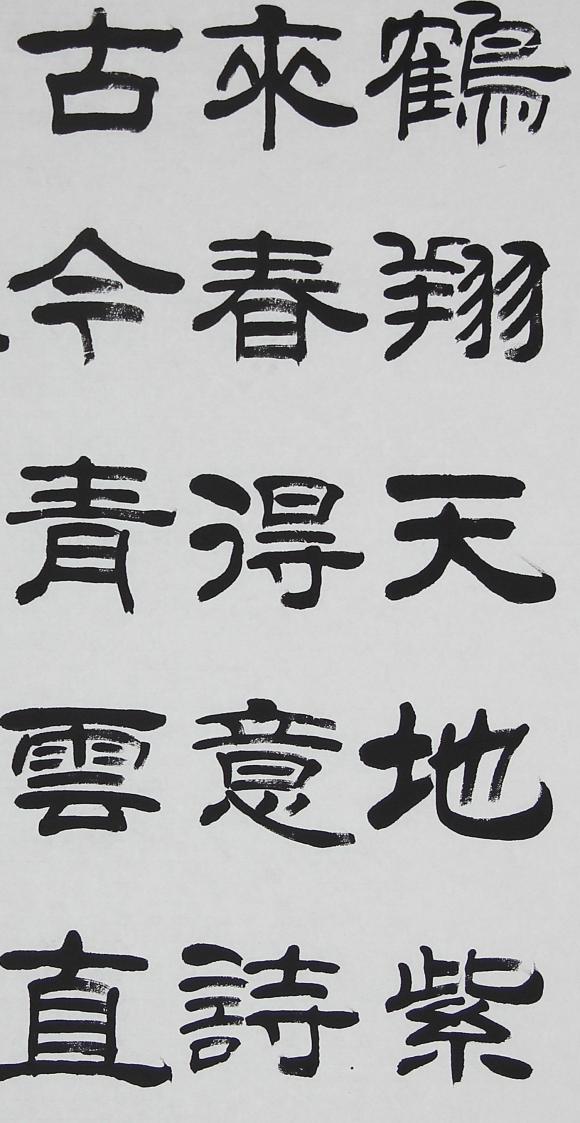 鶴翔天地紫
來春得意詩
古今青雲直